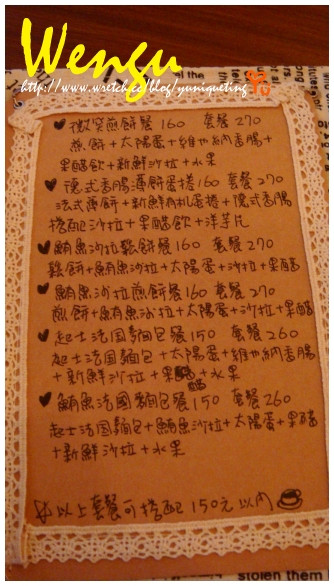 Wengu
http://www.wretch.cc/blog/yuniqueting
♥ 微笑煎餅餐 160 套餐 270
煎餅+太陽蛋+維也納香腸+
果醋飲+新鮮沙拉+水果
♥ 德式香腸薄餅蛋捲 160 套餐 270
法式薄餅+新鮮有机蛋捲+德式香腸
搭配沙拉+果醋飲+洋芋片
♥ 鮪魚沙拉鬆餅餐 160 套餐 270
鬆餅+鮪魚沙拉+太陽蛋+沙拉+果醋
♥ 鮪魚沙拉煎餅餐 160 套餐 270
煎餅+鮪魚沙拉+太陽蛋+沙拉+果醋
♥ 起士法国麵包餐 150 套餐 260
起士法国麵包+太陽蛋+維也納香腸
+新鮮沙拉+果醋+水果
♥ 鮪魚法國麵包餐 150 套餐 260
起士法国麵包+鮪魚沙拉+太陽蛋+果醋
+新鮮沙拉+水果
以上套餐可搭配 150元以內
stolen them